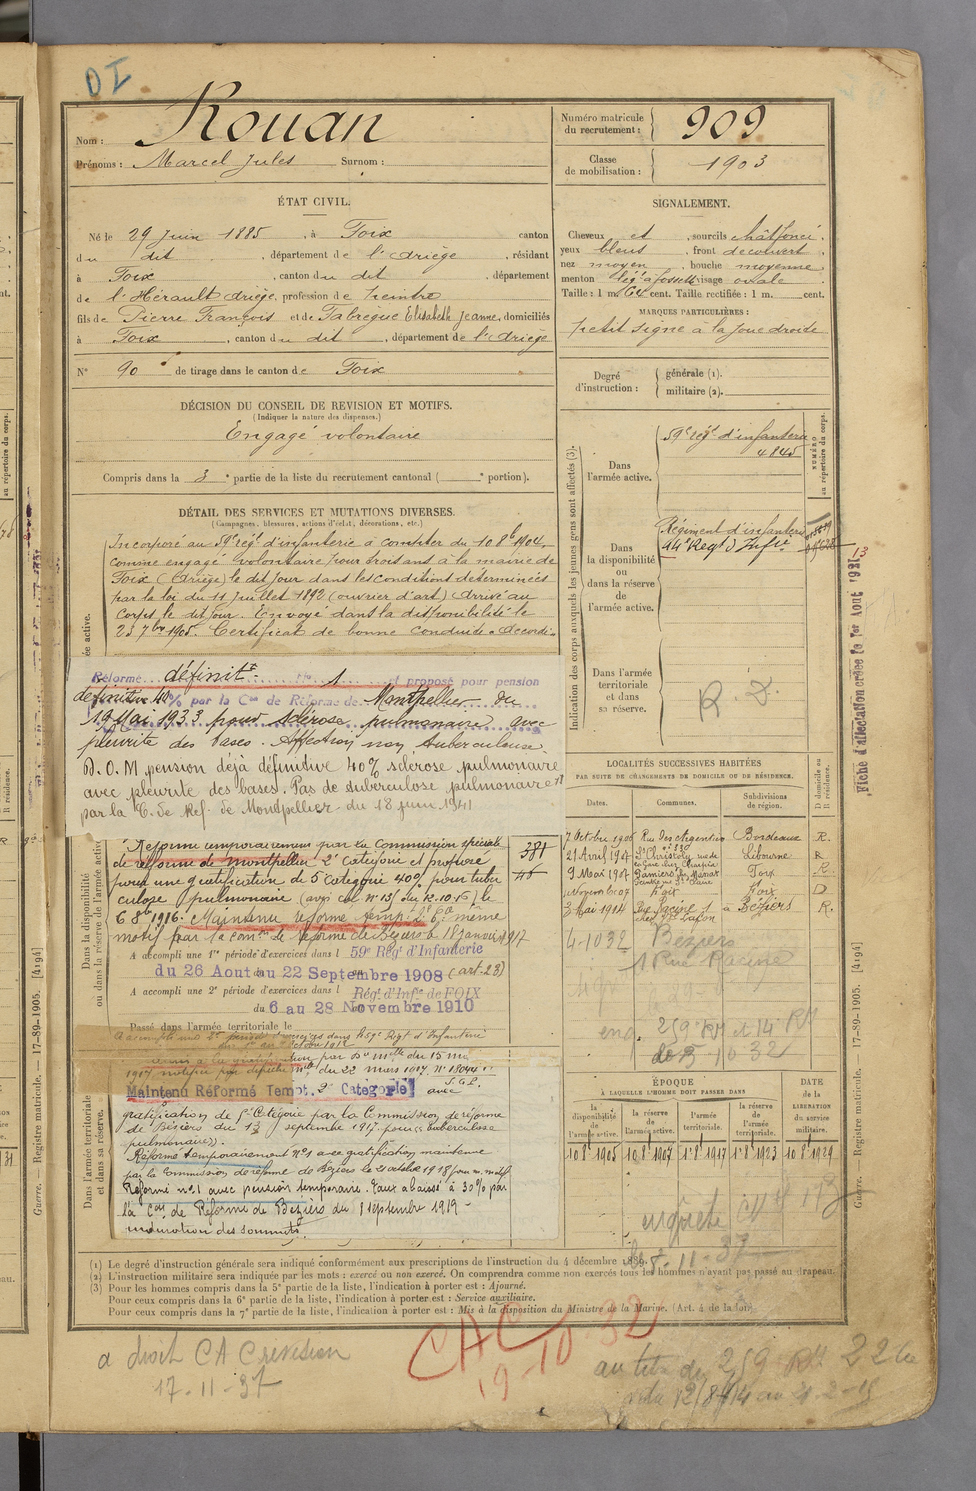 DI
Nom : Rouan
Prénoms : Marcel Jules Surnom :
Numéro matricule du recrutement : 909
Classe de mobilisation : 1903
ÉTAT CIVIL.
Né le 29 Juin 1885, à Foix canton
du dit, département de l'Ariège, résidant
à Foix, canton du dit, département
de l'Hérault Ariège, profession de peintre
fils de Pierre François et de Fabregue Elisabeth Jeanne, domiciliés
à Foix, canton du dit, département de l'Ariège
N° 90 de tirage dans le canton de Foix
SIGNALEMENT.
Cheveux et, sourcils chât foncé,
yeux bleus, front découvert,
nez moyen, bouche moyenne,
menton lég. à fossette visage ovale
Taille : 1 m. 64 cent. Taille rectifiée : 1 m. cent.
MARQUES PARTICULIÈRES :
petit signe à la joue droite
Degré d'instruction : générale (1).
militaire (2).
DÉCISION DU CONSEIL DE REVISION ET MOTIFS.
(Indiquer la nature des dispenses.)
Engagé volontaire
Compris dans la 3e partie de la liste du recrutement cantonal ( e portion).
DÉTAIL DES SERVICES ET MUTATIONS DIVERSES.
(Campagnes, blessures, actions d'éclat, décorations, etc.)
Incorporé au 59e rég.t d'infanterie à compter du 10 8b 1904,
comme engagé volontaire pour trois ans à la mairie de
Foix (Ariège) le dit jour dans les conditions déterminées
par la loi du 11 juillet 1892 (ouvrier d'art) Arrivé au
Corps le dit jour. Envoyé dans la disponibilité le
23 7bre 1905. Certificat de bonne conduite "Accordé".
Réformé définit.t N° 1 et proposé pour pension
définitive 40% par la Con de Réforme de Montpellier du
19 Mai 1933 pour sclérose pulmonaire avec
pleurite des bases. Affection non tuberculeuse.
D. O. M pension déjà définitive 40% sclérose pulmonaire
avec pleurite des bases. Pas de tuberculose pulmonaire
par la C. de Ref. de Montpellier du 18 juin 1941
Réformé temporairement par la Commission spéciale
de réforme de Montpellier 2e Catégorie et proposé
pour une gratification de 5e catégorie 40% pour tuber
culose pulmonaire
6 8b 1916. Maintenu réformé temp. 2e C.ie même
motif par la Comon de réforme de Béziers le 18 janvier 1917
A accompli une 1re période d'exercices dans l 59e Régt d'Infanterie
du 26 Aout au 22 Septembre 1908 (art. 23)
A accompli une 2e période d'exercices dans l Régt d'Infie de FOIX
du 6 au 28 Novembre 1910
Passé dans l'armée territoriale le
1917 notifié par dépêche mlle du 22 mars 1917 n° 18044
Maintenu Réformé Tempt. 2e Catégorie avec
gratification de 5e Catégorie par la Commission de réforme
de Béziers du 13 septembre 1917 pour "tuberculose
pulmonaire".
Réformé temporairement n°1 avec gratification maintenue
par la Commission de réforme de Béziers le 21 octobre 1918 pour m. motif
Réformé n°1 avec pension temporaire. Taux abaissé à 30% par
la Con de Réforme de Béziers du 1 septembre 1919 -
induration des sommets
Dans la disponibilité ou dans la réserve de l'armée active.
Dans l'armée territoriale et dans sa réserve.
Indication des corps auxquels les jeunes gens sont affectés (3).
NUMÉRO au répertoire du corps.
Dans l'armée active.
59e rég.t d'infanterie
4845
Dans la disponibilité ou dans la réserve de l'armée active.
Régiment d'infanterie
Dans l'armée territoriale et dans sa réserve.
R. D.
Fiche d'affectation créée le 1er Aout 1921
LOCALITÉS SUCCESSIVES HABITÉES
PAR SUITE DE CHANGEMENTS DE DOMICILE OU DE RÉSIDENCE.
Dates. Communes. Subdivisions de région. D domicile ou R résidence.
7 Octobre 1906 Rue des Argentiers Bordeaux R.
21 Avril 1907 St Christoly Libourne R
9 Mai 1907 Pamiers Foix R.
Foix Foix D
3 Mai 1914 Rue Racine 1 à Béziers R.
4-10 32 Béziers
1 Rue Racine
enq. 259 RM et 14 RM
de 5-10 32
ÉPOQUE
À LAQUELLE L'HOMME DOIT PASSER DANS
DATE de la LIBÉRATION du service militaire.
la disponibilité de l'armée active. la réserve de l'armée active. l'armée territoriale. la réserve de l'armée territoriale.
10 8b 1905 10 8b 1907 1er 8b 1917 1er 8b 1923 10 8b 1929
enquête
le 8-11-37
(1) Le degré d'instruction générale sera indiqué conformément aux prescriptions de l'instruction du 4 décembre 1889.
(2) L'instruction militaire sera indiquée par les mots : exercé ou non exercé. On comprendra comme non exercés tous les hommes n'ayant pas passé au drapeau.
(3) Pour les hommes compris dans la 5e partie de la liste, l'indication à porter est : Ajourné.
Pour ceux compris dans la 6e partie de la liste, l'indication à porter est : Service auxiliaire.
Pour ceux compris dans la 7e partie de la liste, l'indication à porter est : Mis à la disposition du Ministre de la Marine. (Art. 4 de la loi).
Guerre. — Registre matricule. — 17-89-1905. [4194]
a droit CA C revision
17-11-37
CAC
19-10-32
au titre du 259 RM